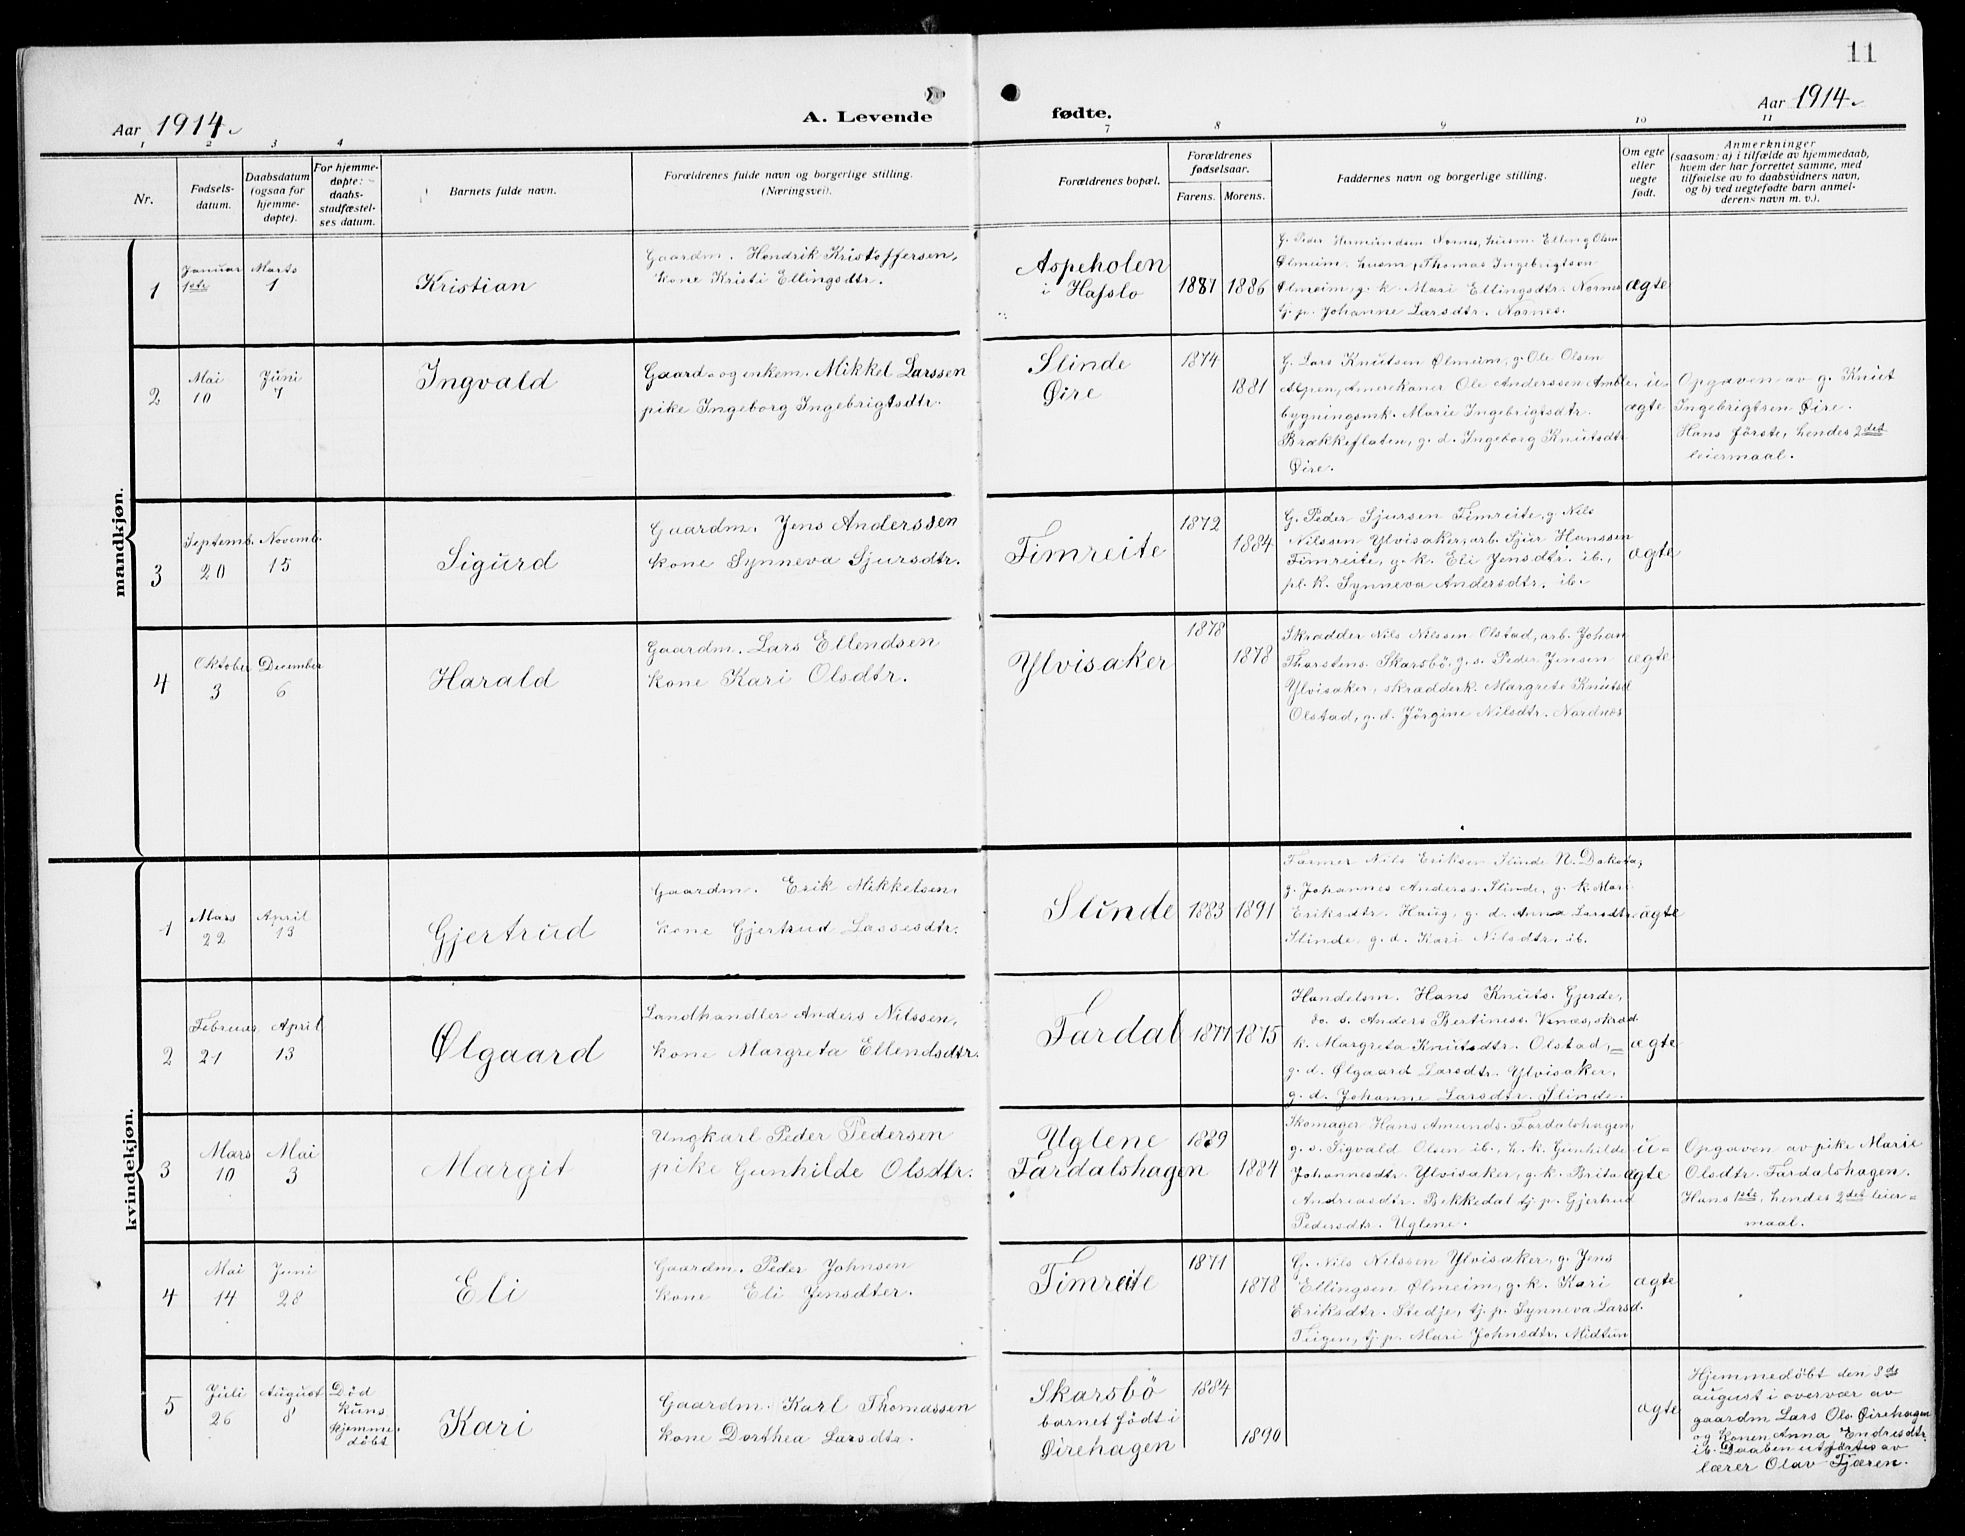 11
Aar 1914.
A. Levende
fødte.
Aar 1914.
1 2 3 4 7 8 9 10 11
Nr.
Fødsels-
datum.
Daabsdatum
(ogsaa for
hjemme-
døpte).
For hjemme-
døpte:
daabs-
stadfæstel-
ses datum.
Barnets fulde navn.
Forældrenes fulde navn og borgerlige stilling.
(Næringsvei).
Forældrenes bopæl.
Forældrenes
fødselsaar.
Farens. Morens.
Faddernes navn og borgerlige stilling.
Om egte
eller
uegte
født.
Anmerkninger
(saasom: a) i tilfælde av hjemmedaab,
hvem der har forrettet samme, med
tilføielse av to daabsvidners navn,
og b) ved uegtefødte barn anmel-
derens navn m. v.).
mandkjøn.
1
Januar
1ste
Marts
1
Kristian
Gaardm. Hendrik Kristoffersen,
kone Kristi Ellingsdtr.
Aspeholen
i Hafslo
1881 1886
G. Peder Hermundsen Nornes, husm. Elling Olsen
Ølmeim, husm. Thomas Ingebrigtsen
Ølmeim, g. k. Mari Ellingsdtr. Nornes
tj. p. Johanne Larsdtr. Nornes.
ægte
2
Mai
10
Juni
7
Ingvald
Gaard- og enkem. Mikkel Larssen
pike Ingeborg Ingebrigtsdtr.
Slinde
Øire
1874
1881
G. Lars Knutsen Ølmeim, g. Ole Olsen
Alpen, Amerekaner Ole Anderssen Amble,
bygningsmk. Marie Ingebrigtsdtr.
Brækkeflaten, g. d. Ingeborg Knutsdtr
Øire.
u-
ægte
Opgaven av g. Knut
Ingebrigtsen Øire.
Hans første, hendes 2det
leiermaal.
3
Septemb.
20
Novemb.
15
Sigurd
Gaardm. Jens Anderssen
kone Synneva Sjursdtr.
Timreite
1872
1884
G. Peder Sjursen Timreite, g. Nils
Nilssen Ylvisaker, arb. Sjur Hanssen
Timreite, g. k. Eli Jensdtr. ib.,
pl. k. Synneva Andersdtr. ib.
ægte
4
Oktober
3
December
6
Harald
Gaardm. Lars Ellendsen
kone Kari Olsdtr.
Ylvisaker
1878
1878
Skrædder Nils Nilssen Olstad, arb. Johan
Thorstens. Skarsbö, g. s. Peder Jensen
Ylvisaker, skrædderk. Margrete Knutsd
Olstad, g. d. Jörgine Nilsdtr. Nordnes
ægte
kvindekjøn.
1
Mars
22
April
13
Gjertrud
Gaardm. Erik Mikkelsen,
kone Gjertrud Lassesdtr.
Slinde
1883 1891
Farmer Nils Eriksen Slinde N. Dakota,
g. Johannes Anderss. Slinde, g. k. Mari
Eriksdtr. Haug, g. d. Anna Larsdtr.
Slinde, g. d. Kari Nilsdtr. ib.
ægte
2
Februar
21
April
13
Ølgaard
Landhandler Anders Nilssen,
kone Margreta Ellendsdtr.
Fardal
1877 1875
Handelsm. Hans Knuts. Gjerde,
do. s. Anders Bertiness. Venæs, skræd
k. Margreta Knutsdtr. Olstad,
g. d. Ølgaard Larsdtr. Ylvisaker,
g. d. Johanne Larsdtr. Slinde.
ægte
3
Mars
10
Mai
3
Margit
Ungkarl Peder Pedersen
pike Gunhilde Olsdtr.
Uglene
Fardalshagen
1889
1884
Skomager Hans Amunds. Fardalshagen,
g. s. Sigvald Olsen ib., h. k. Gunhilde
Johannesdtr. Ylvisaker, g. k. Brita
Andreasdtr. Bekkedal tj. p. Gjertrud
Pedersdtr. Uglene.
u-
ægte
Opgaven av pike Marie
Olsdtr. Fardalshagen.
Hans 1ste, hendes 2det leier-
maal.
4
Mai
14
Juni
28
Eli
Gaardm. Peder Johnsen
kone Eli Jensdter.
Timreite
1871
1878
G. Nils Nilssen Ylvisaker, g. Jens
Ellingsen Ølmeim, g. k. Kari
Eriksdtr. Stedje, tj. p. Synneva Larsd.
Teigen, tj. p. Mari Johnsdtr. Midtun
ægte
5
Juli
26
August
8
Död
kuns
hjemme-
döbt
Kari
Gaardm. Karl Thomassen
kone Dorthea Larsdtr.
Skarsbö
barnet födt i
Øirehagen
1884
1890
ægte
Hjemmedöbt den 8de
august i overvær av
gaardm Lars Ols. Øirehagen
og konen Anna Endresdtr.
ib. Daaben utførtes av
lærer Olav Tjæren.